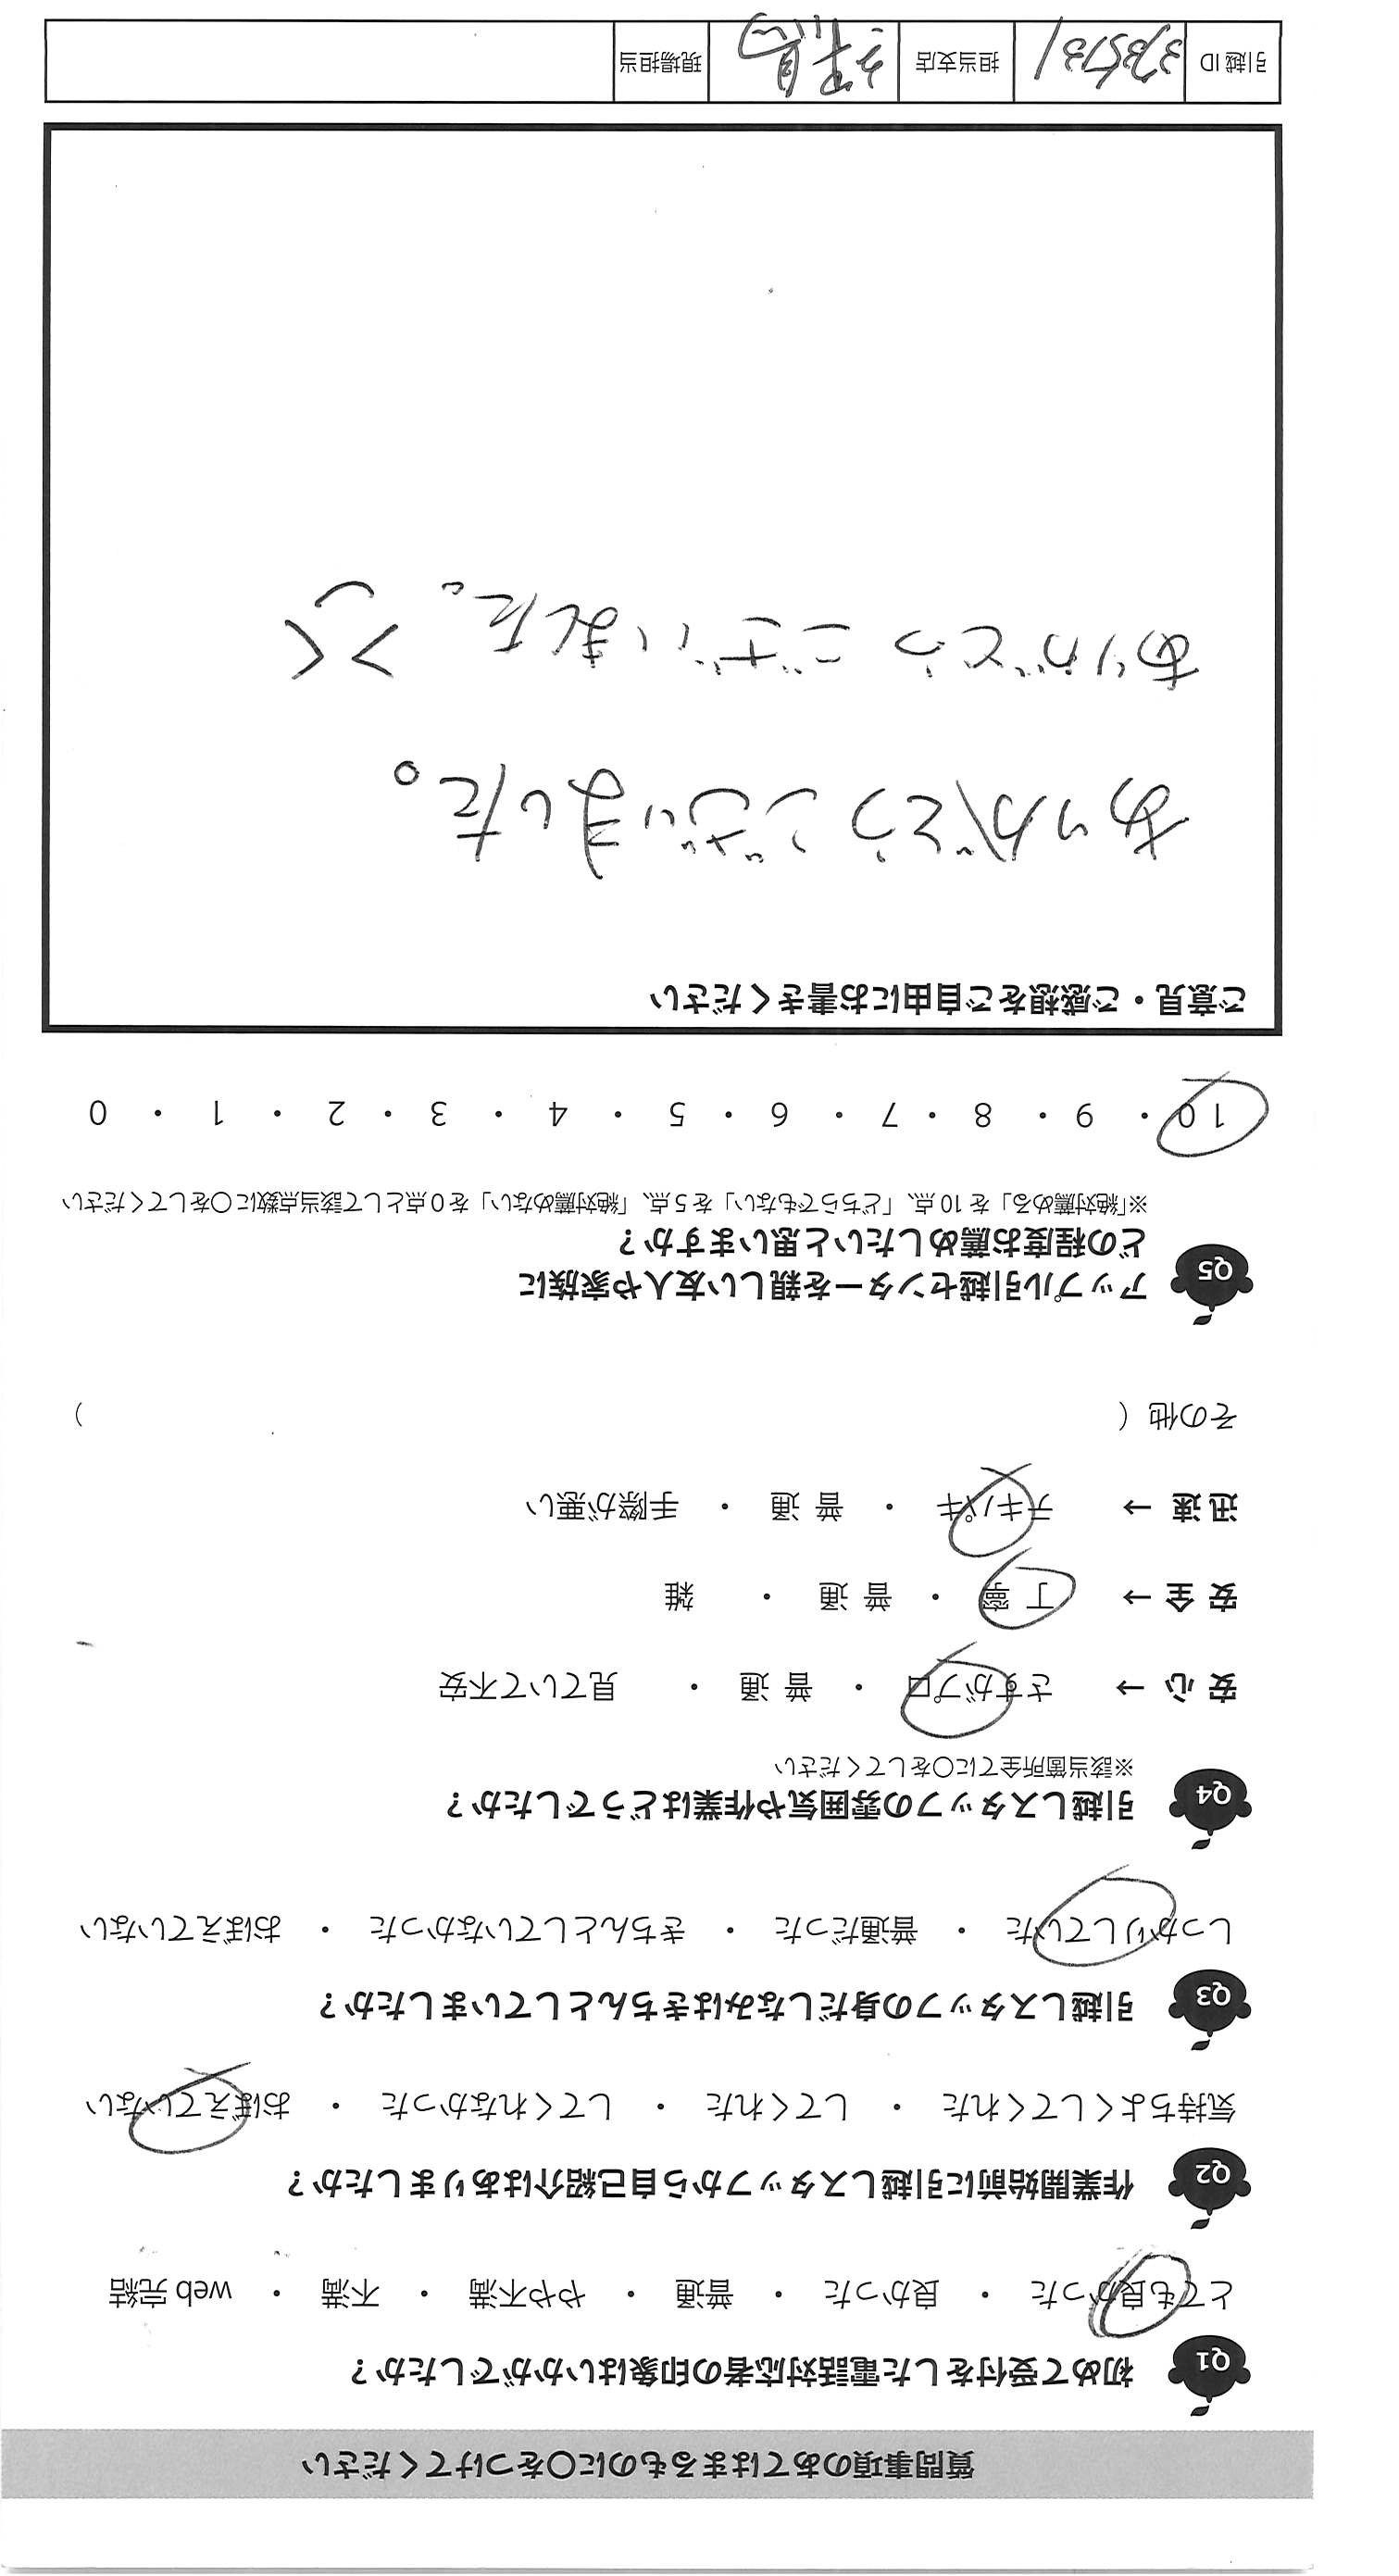 質問事項のあてはまるものに〇をつけてください
Q1 初めて受付をした電話対応者の印象はいかがでしたか？
とても良かった ・ 良かった ・ 普通 ・ やや不満 ・ 不満 ・ web 完結
Q2 作業開始前に引越しスタッフから自己紹介はありましたか？
気持ちよくしてくれた ・ してくれた ・ してくれなかった ・ おぼえていない
Q3 引越しスタッフの身だしなみはきちんとしていましたか？
しっかりしていた ・ 普通だった ・ きちんとしていなかった ・ おぼえていない
Q4 引越しスタッフの雰囲気や作業はどうでしたか？
※該当箇所全てに〇をしてください
安 心 → さすがプロ ・ 普 通 ・ 見ていて不安
安 全 → 丁 寧 ・ 普 通 ・ 雑
迅 速 → テキパキ ・ 普 通 ・ 手際が悪い
その他（ ）
Q5 アップル引越センターを親しい友人や家族に
どの程度お薦めしたいと思いますか？
※「絶対薦める」を 10 点、「どちらでもない」を 5 点、「絶対薦めない」を 0 点として該当点数に〇をしてください
10 ・ 9 ・ 8 ・ 7 ・ 6 ・ 5 ・ 4 ・ 3 ・ 2 ・ 1 ・ 0
ご意見・ご感想をご自由にお書きください
ありがとうございました。
ありがとうございました。
引越 ID 担当支店 練馬 現場担当